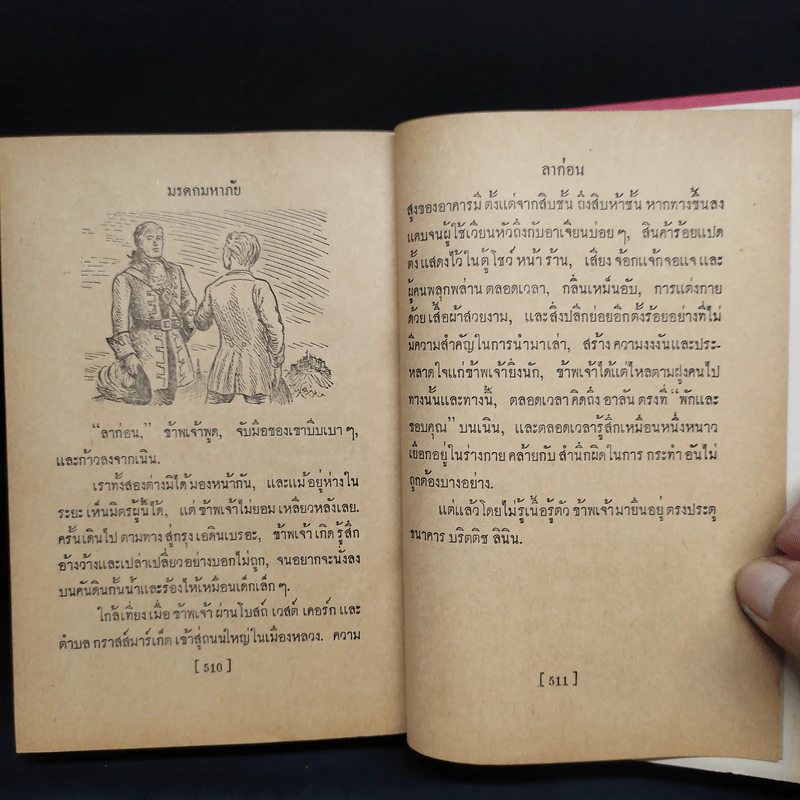 มรดกมหาภัย
"ลาก่อน," ข้าพเจ้าพูด, จับมือของเขาบีบเบา ๆ,
และก้าวลงจากเนิน.
เราทั้งสองต่างมิได้ มองหน้ากัน, และแม้ อยู่ห่างใน
ระยะ เห็นมิตรผู้นี้ได้, แต่ ข้าพเจ้าไม่ยอม เหลียวหลังเลย.
ครั้นเดินไป ตามทาง สู่กรุง เอดินเบรอะ, ข้าพเจ้า เกิด รู้สึก
อ้างว้างและเปล่าเปลี่ยวอย่างบอกไม่ถูก, จนอยากจะนั่งลง
บนคันดินกั้นน้ำและร้องไห้เหมือนเด็กเล็ก ๆ.
ใกล้เที่ยง เมื่อ ข้าพเจ้า ผ่านโบสถ์ เวสต์ เคอร์ก และ
ตำบล กราสส์มาร์เก็ต เข้าสู่ถนนใหญ่ในเมืองหลวง. ความ
[ 510 ]
ลาก่อน
สูงของอาคารมี ตั้งแต่จากสิบชั้น ถึงสิบห้าชั้น หากทางขึ้นลง
แคบจนผู้ใช้เวียนหัวถึงกับอาเจียนบ่อย ๆ, สินค้าร้อยแปด
ตั้ง แสดงไว้ ใน ตู้ โชว์ หน้า ร้าน, เสียง จ้อกแจ้กจอแจ และ
ผู้คนพลุกพล่าน ตลอดเวลา, กลิ่นเหม็นอับ, การแต่งกาย
ด้วย เสื้อผ้าสวยงาม, และสิ่งปลีกย่อยอีกตั้งร้อยอย่างที่ไม่
มีความสำคัญในการนำมาเล่า, สร้าง ความงงงันและประ-
หลาดใจแก่ข้าพเจ้ายิ่งนัก, ข้าพเจ้าได้แต่ไหลตามฝูงคนไป
ทางนั้นและทางนี้, ตลอดเวลา คิดถึง อาลัน ตรงที่ "พักและ
ขอบคุณ" บนเนิน, และตลอดเวลารู้สึกเหมือนหนึ่งหนาว
เยือกอยู่ในร่างกาย คล้ายกับ สำนึกผิดในการ กระทำ อันไม่
ถูกต้องบางอย่าง.
แต่แล้วโดยไม่รู้เนื้อรู้ตัว ข้าพเจ้า มายืนอยู่ ตรงประตู
ธนาคาร บริตติช ลินิน.
[ 511 ]